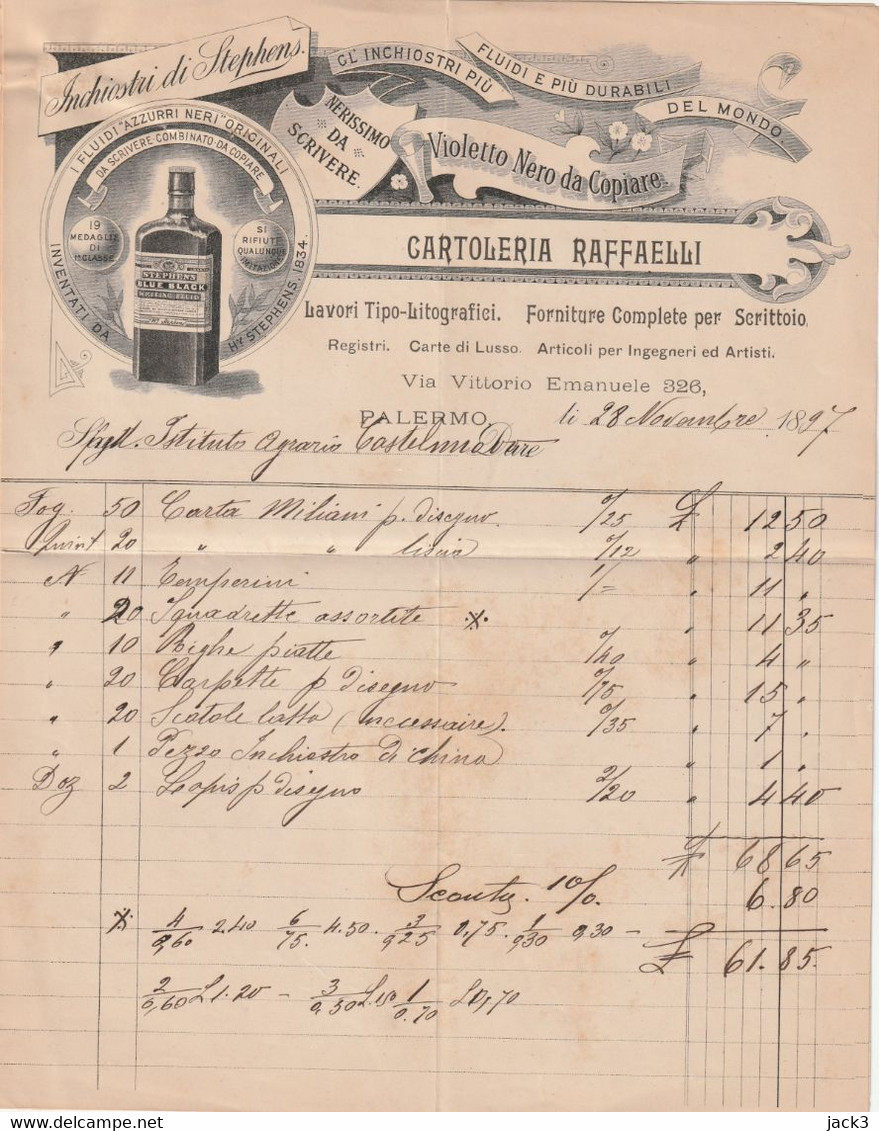 Inchiostri di Stephens.
GL'INCHIOSTRI PIÙ FLUIDI E PIÙ DURABILI DEL MONDO
NERISSIMO DA SCRIVERE.
Violetto Nero da Copiare.
I FLUIDI "AZZURRI NERI" ORIGINALI
DA SCRIVERE COMBINATO DA COPIARE
19 MEDAGLIE DI 1ª CLASSE
SI RIFIUTI QUALUNQUE IMITAZIONE
INVENTATI DA Hy STEPHENS, 1834.
STEPHENS
BLUE BLACK
WRITING FLUID
CARTOLERIA RAFFAELLI
Lavori Tipo-Litografici. Forniture Complete per Scrittoio,
Registri. Carte di Lusso. Articoli per Ingegneri ed Artisti.
Via Vittorio Emanuele 326,
PALERMO, li 28 Novembre 1897
Spett. Istituto Agrario Castelnuovo
Fog. 50 Carta Miliani p. disegno 0/25 £ 12 50
20 " " liscia 0/12 " 2 40
N 11 Temperini 1/= " 11 "
" 20 Squadrette assortite ※ " 11 35
" 10 Righe piatte 0/40 " 4 "
" 20 Carpette p disegno 0/75 " 15 "
" 20 Scatole latta (necessaire). 0/35 " 7 "
" 1 Pezzo Inchiostro di china " 1 "
Doz 2 Lapis p disegno 2/20 " 4 40
£ 68 65
Sconto 10%. 6.80
※ 4/0,60 2.40 6/75. 4.50. 3/0,25 0,75. 1/0,30 0,30 —
£ 61.85.
2/0,60 £1.20 — 3/0,50 £1.50 1/0.70 £0,70
jack3
www.delcampe.net